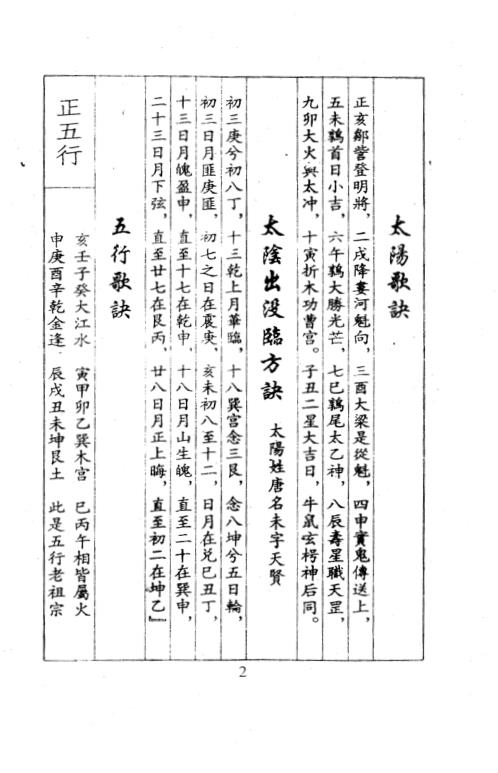 太陽歌訣
正亥鄒訾登明將，二戌降婁河魁向，三酉大梁是從魁，四申實鬼傳送上，
五未鶉首日小吉，六午鶉大勝光芒，七巳鶉尾太乙神，八辰壽星職天罡，
九卯大火與太冲，十寅折木功曹宮。子丑二星大吉日，牛鼠玄枵神后同。
太陰出没臨方訣 太陽姓唐名未字天賢
初三庚兮初八丁，十三乾上月華臨，十八巽宮念三艮，念八坤兮五日輪，
初三日月匪庚匪，初七之日在震庚，亥未初八至十二，日月在兑巳丑丁，
十三日月魄盈申，直至十七在乾申，十八日月山生魄，直至二十在巽申，
二十三日月下弦，直至廿七在艮丙，廿八日月正上晦，直至初二在坤乙』
五行歌訣
正五行
亥壬子癸大江水 寅甲卯乙巽木宮 巳丙午相皆屬火
申庚酉辛乾金逢 辰戌丑未坤艮土 此是五行老祖宗
2